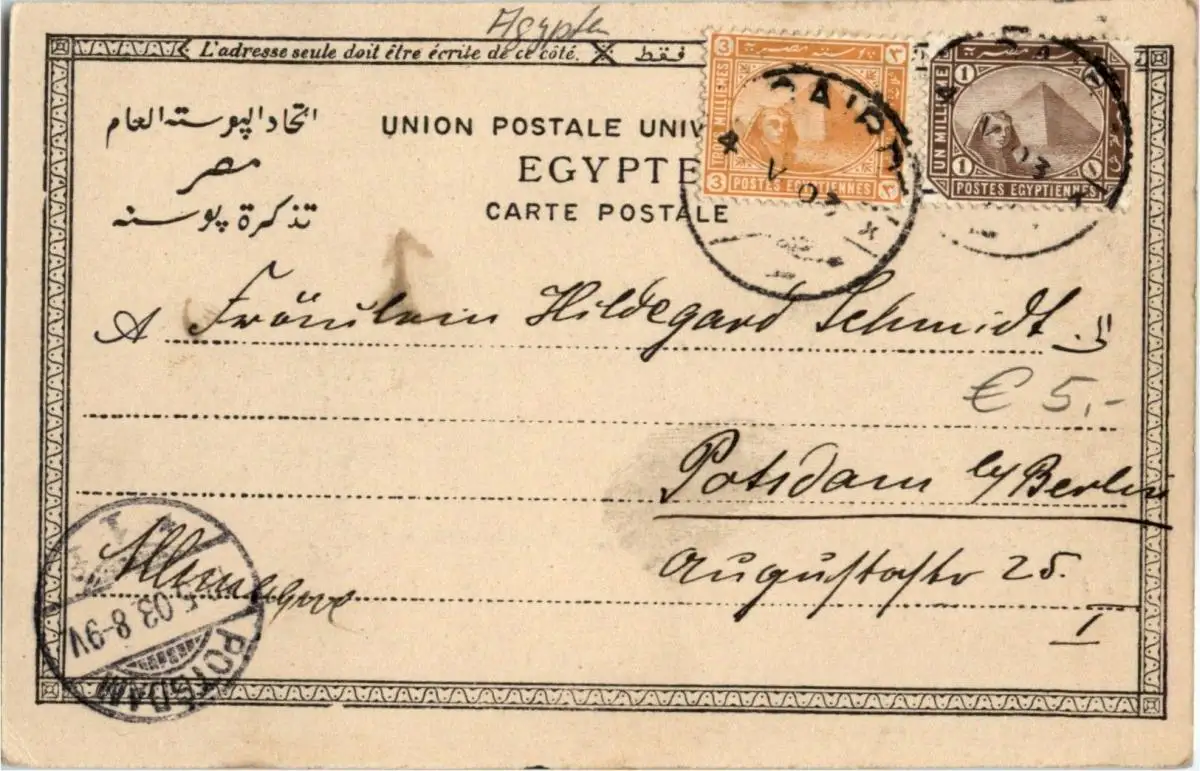 Agypten
L'adresse seule doit être écrite de ce côté.
فقط
اتحاد البوسته العام
مصر
تذكرة بوسته
UNION POSTALE UNIV
EGYPTE
CARTE POSTALE
3 MILLIEMES
3 ٣
POSTES EGYPTIENNES
بوستة مصرية
CAIRO
4 V 03
1
UN MILLIEME
1 ١
POSTES EGYPTIENNES
V 03
A Fräulein Hildegard Schmidt
€ 5,-
Potsdam b/Berlin
Augustastr 25.
I
Allemagne
5.03.8-9V
POTSDAM